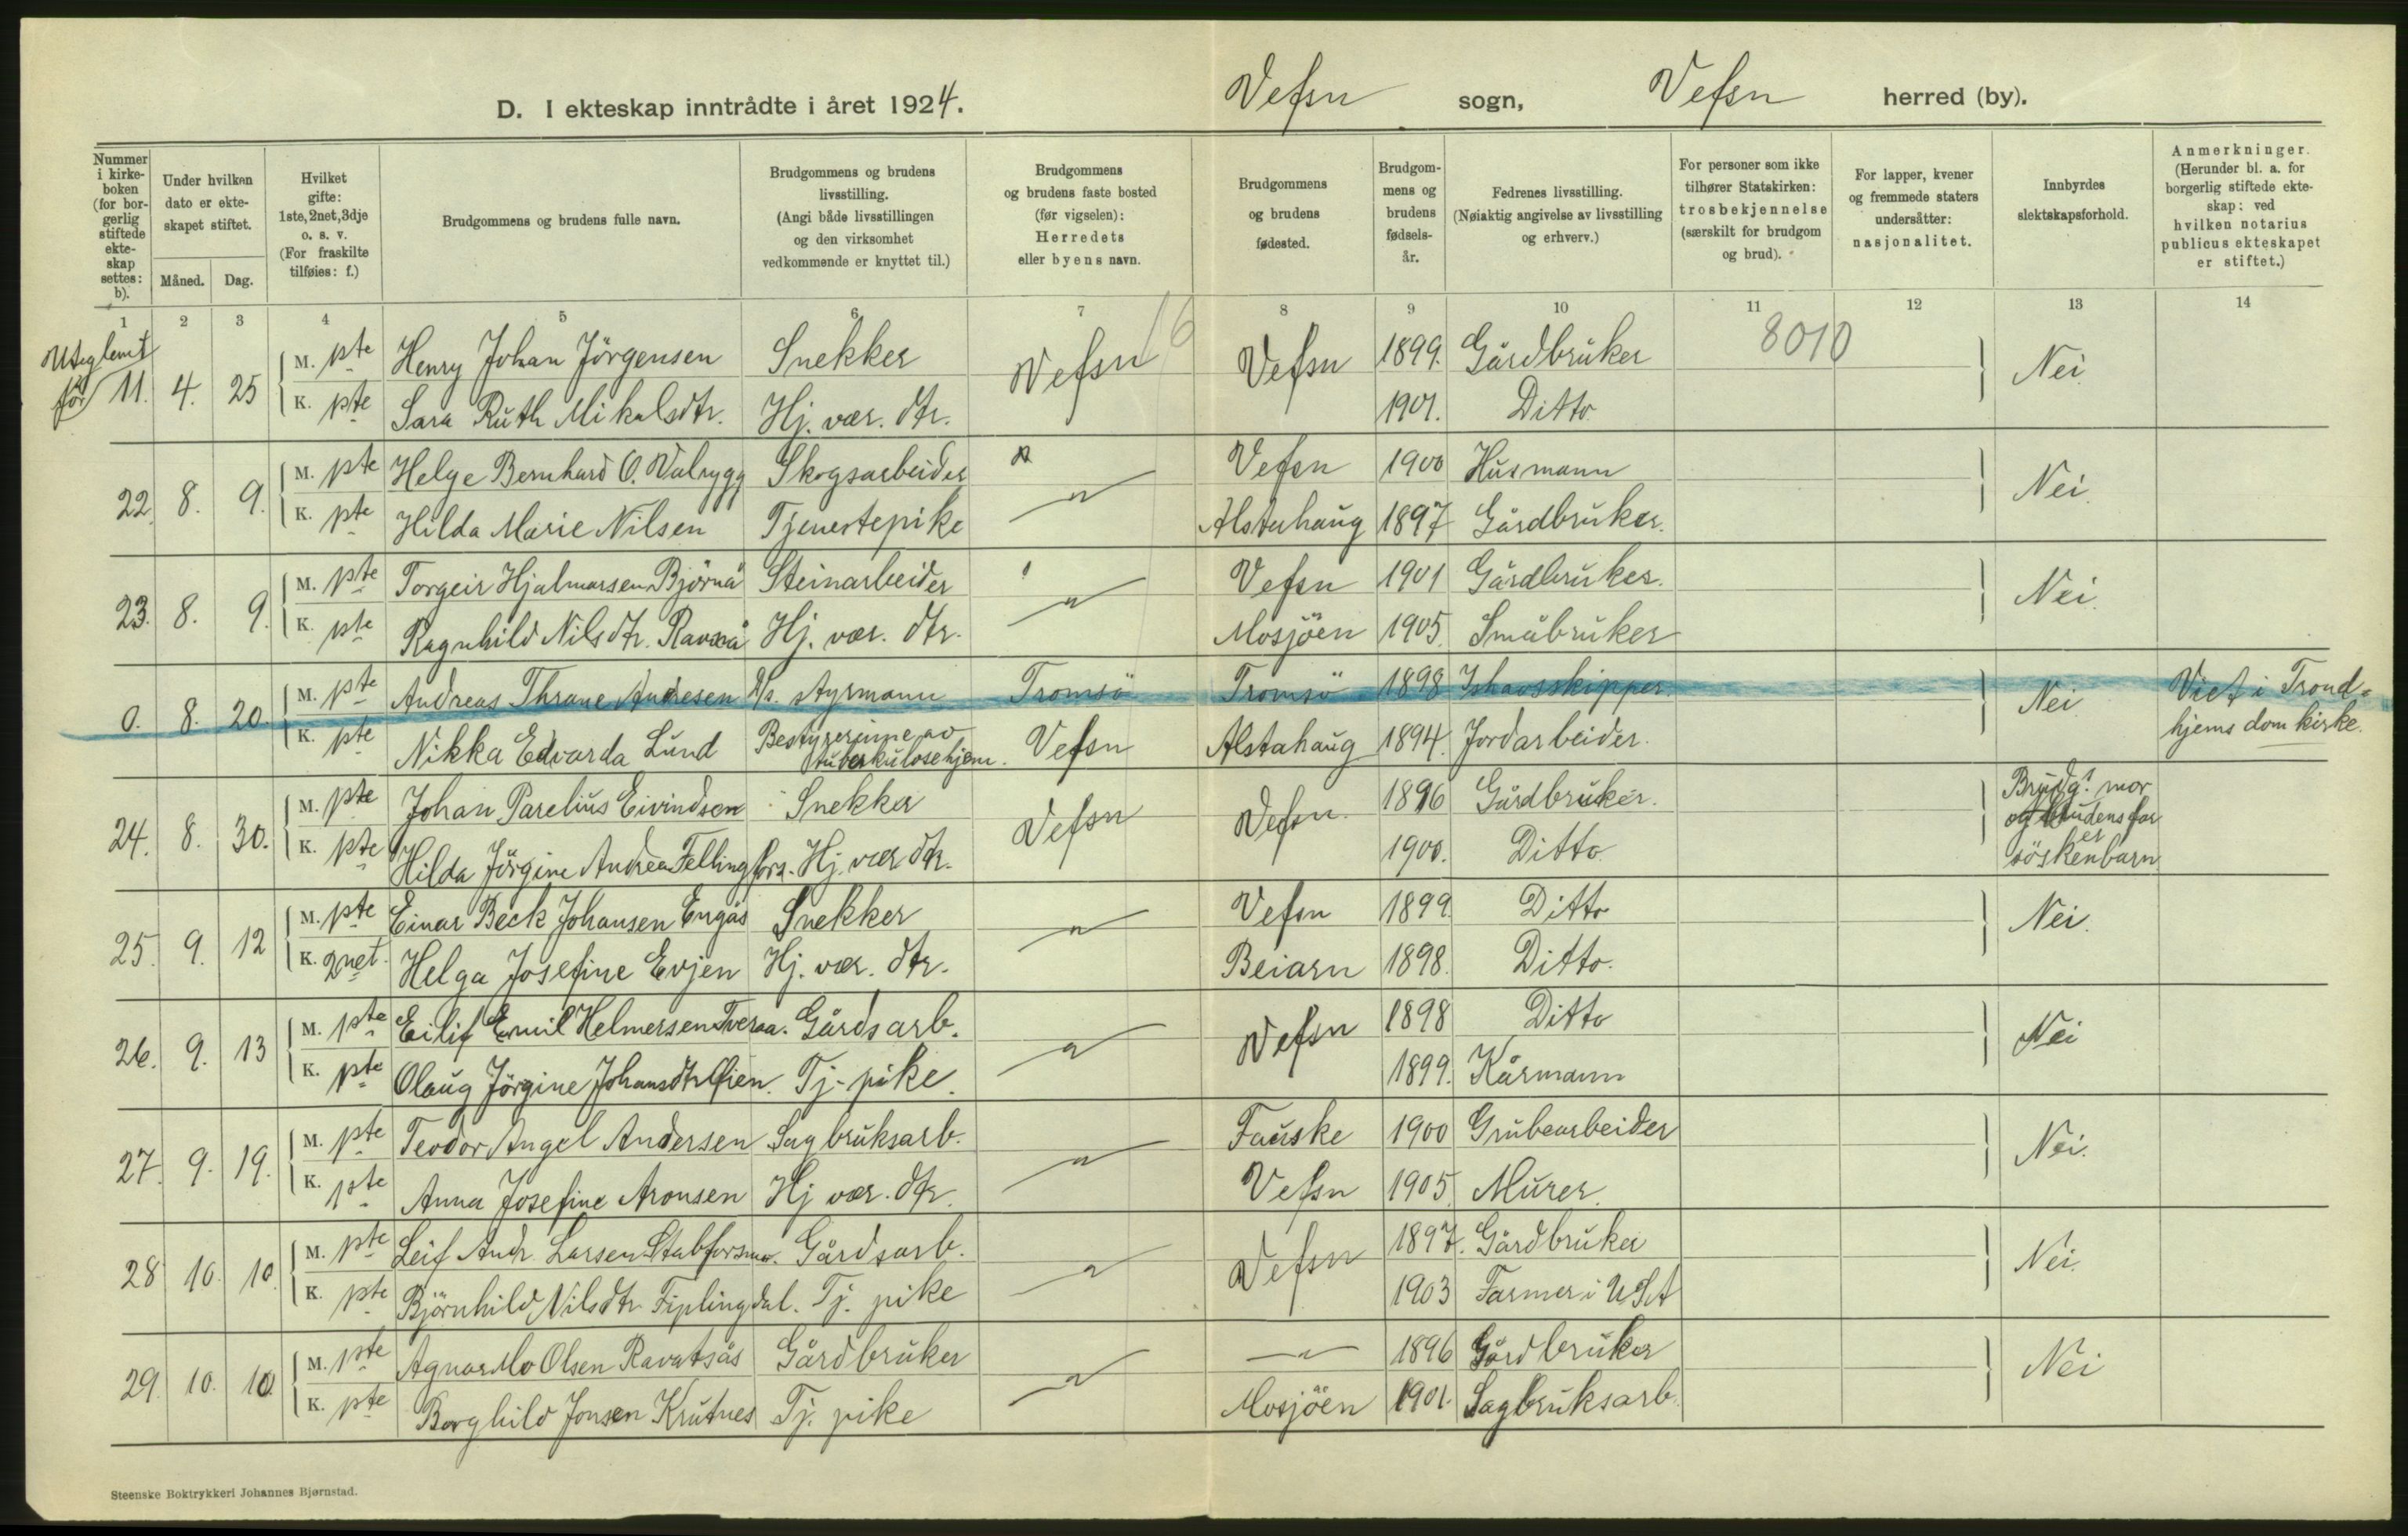 D. I ekteskap inntrådte i året 1924.
Vefsn sogn, Vefsn herred (by).
Nummer i kirkeboken (for borgerlig stiftede ekteskap settes: b).
Under hvilken dato er ekteskapet stiftet.
Måned. Dag.
Hvilket gifte: 1ste, 2net, 3dje o. s. v. (For fraskilte tilføies: f.)
Brudgommens og brudens fulle navn.
Brudgommens og brudens livsstilling. (Angi både livsstillingen og den virksomhet vedkommende er knyttet til.)
Brudgommens og brudens faste bosted (før vigselen): Herredets eller byens navn.
Brudgommens og brudens fødested.
Brudgommens og brudens fødselsår.
Fedrenes livsstilling. (Nøiaktig angivelse av livsstilling og erhverv.)
For personer som ikke tilhører Statskirken: trosbekjennelse (særskilt for brudgom og brud).
For lapper, kvener og fremmede staters undersåtter: nasjonalitet.
Innbyrdes slektskapsforhold.
Anmerkninger. (Herunder bl. a. for borgerlig stiftede ekteskap: ved hvilken notarius publicus ekteskapet er stiftet.)
1 2 3 4 5 6 7 8 9 10 11 12 13 14
16 8010
Uteglemt før 11. 4. 25 M. 1ste Henry Johan Jörgensen Snekker Vefsn Vefsn 1899. Gårdbruker Nei
K. 1ste Sara Ruth Mikalsdtr. Hj. vær. dtr. 1901. Ditto
22. 8. 9. M. 1ste Helge Bernhard O. Valrygg Skogsarbeider " Vefsn 1900 Husmann Nei.
K. 1ste Hilda Marie Nilsen Tjenestepike Alstahaug 1897 Gårdbruker.
23. 8. 9. M. 1ste Torgeir Hjalmarsen Björnå Steinarbeider " Vefsn 1901 Gårdbruker. Nei.
K. 1ste Ragnhild Nilsdtr. Ravnå Hj. vær. dtr. Mosjöen 1905. Småbruker
0. 8. 20. M. 1ste Andreas Thrane Andresen D/s. styrmann Tromsö Tromsö 1898 Ishavsskipper. Nei Viet i Trondhjems domkirke.
K. 1ste Nikka Edvarda Lund Bestyrerinne av tuberkulosehjem. Vefsn Alstahaug 1894. Jordarbeider.
24. 8. 30. M. 1ste Johan Parelius Eivindsen Snekker Vefsn Vefsn. 1896 Gårdbruker. Brudg.s mor og brudens far er söskenbarn
K. 1ste Hilda Jörgine Andrea Fellingfors. Hj. vær dtr. 1900. Ditto
25. 9. 12 M. 1ste Einar Beck Johansen Engås Snekker " Vefsn 1899. Ditto Nei.
K. 2net. Helga Josefine Evjen Hj. vær. dtr. Beiarn 1898. Ditto.
26. 9. 13 M. 1ste Eilif Emil Helmersen Tveraa. Gårdsarb. " Vefsn 1898 Ditto Nei
K. 1ste Olaug Jörgine Johansdtr Öien. Tj.-pike. 1899. Kårmann
27. 9. 19. M. 1ste Teodor Angel Andersen Sagbruksarb. " Fauske 1900 Grubearbeider Nei.
K. 1ste Anna Josefine Aronsen Hj vær. dtr. Vefsn 1905. Murer.
28 10. 10. M. 1ste Leif Andr. Larsen Stabforsmo. Gårdsarb. " Vefsn 1897. Gårdbruker Nei.
K. 1ste Björnhild Nilsdtr Fiplingdal. Tj. pike 1903 Farmer i USA
29. 10. 10 M. 1ste Agnar Mo Olsen Ravatsås Gårdbruker " " 1896 Gårdbruker Nei
K. 1ste Borghild Jonsen Krutnes Tj. pike Mosjöen 1901. Sagbruksarb.
Steenske Boktrykkeri Johannes Bjørnstad.